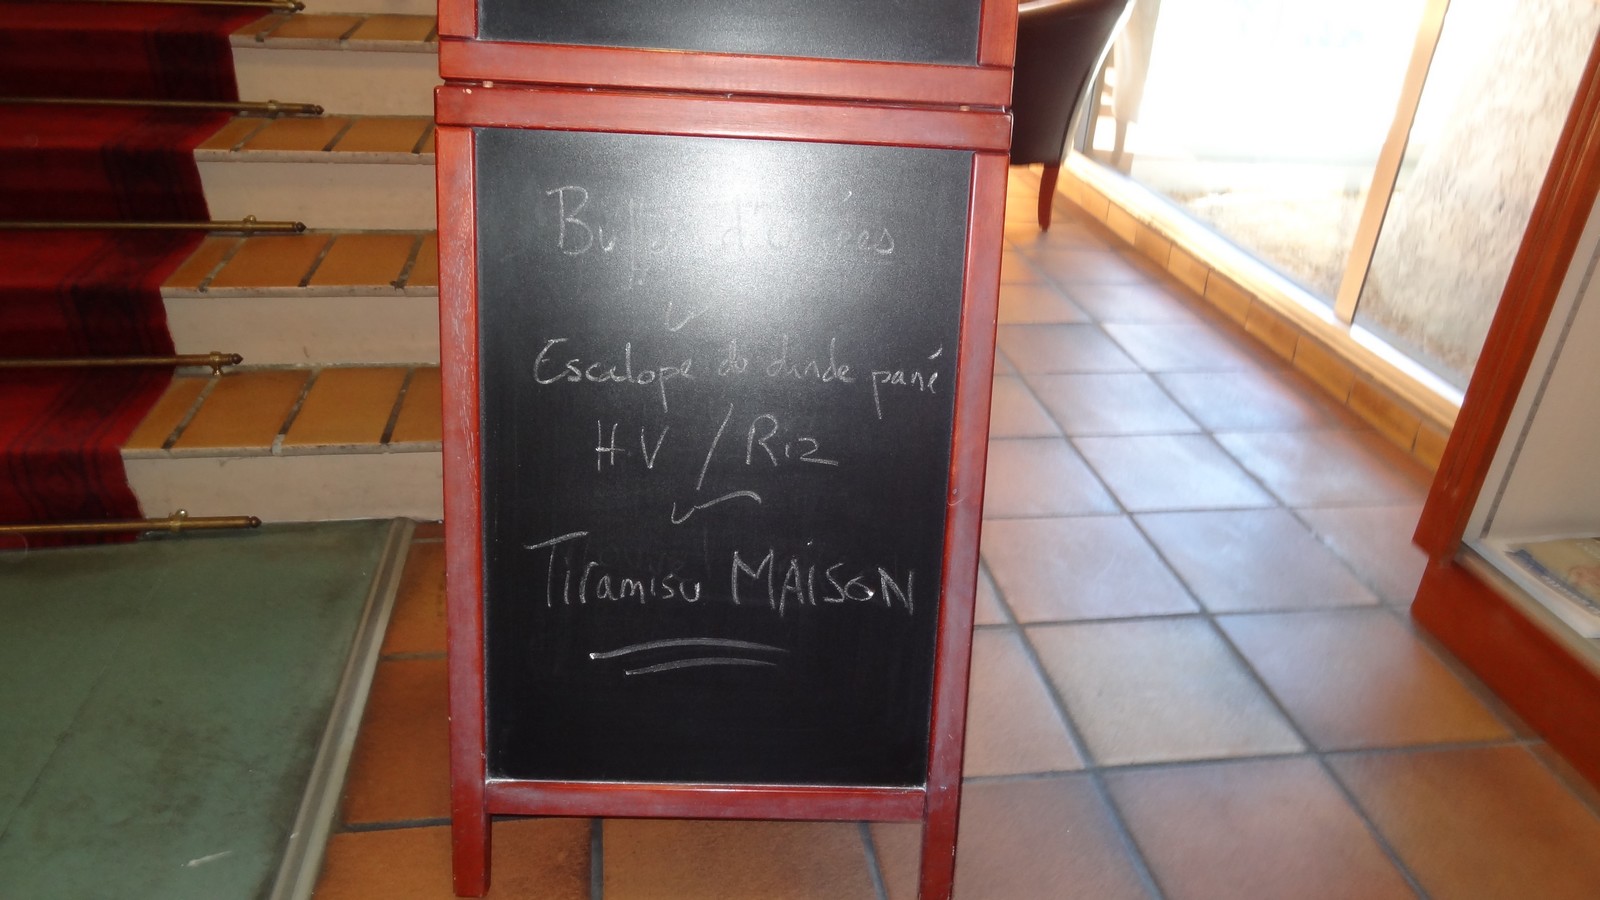 Buffet d'entrées
Escalope de dinde pané
H.V / Riz
Tiramisu MAISON